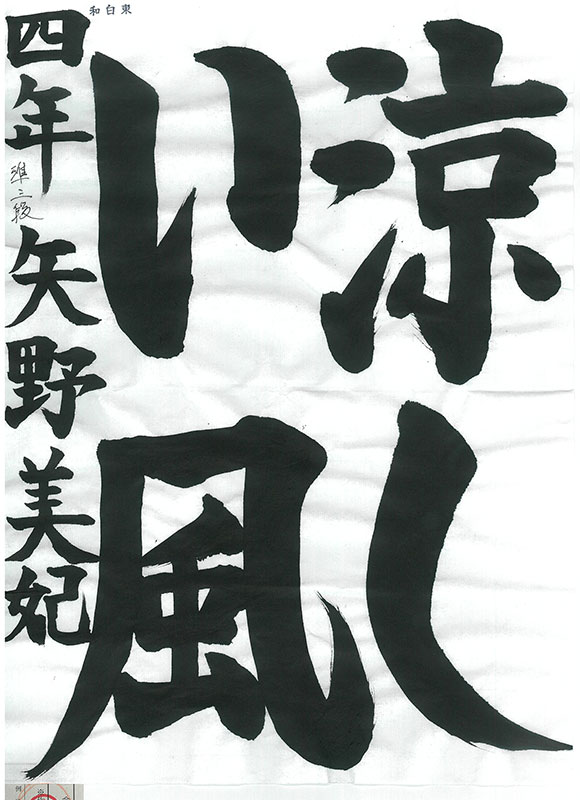 東白和
涼し
い風
四年 準三段 矢野美妃
例